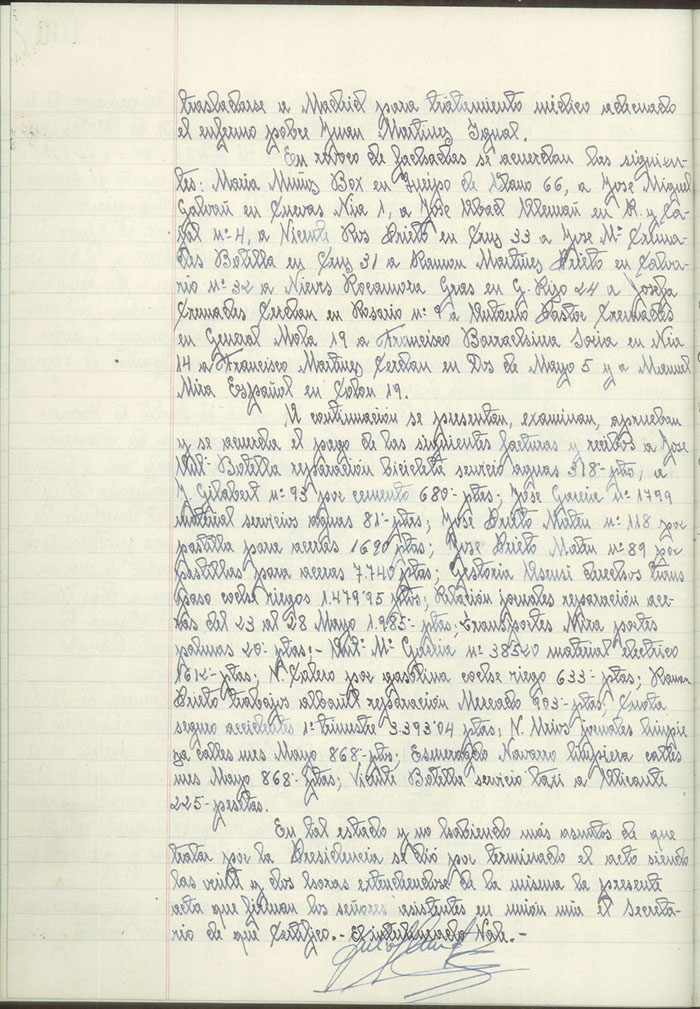 trasladarse a Madrid para tratamiento médico adecuado
el enfermo pobre Juan Martinez Igual.
En revoco de fachadas se acuerdan las siguien-
tes: Maria Muñoz Box en Queipo de Llano 66, a Jose Miguel
Galvañ en Cuevas Nia 1, a Jose Abad Alemañ en R. y Ca-
jal nº 4, a Vicente Ros Prieto en Cruz 33 a Jose Mª Crema-
des Botella en Cruz 31 a Ramon Martinez Prieto en Calva-
rio nº 32 a Nieves Rocamora Gras en G. Rigo 24 a Josefa
Cremades Cerdan en Rosario nº 9 a Antonio Pastor Cremades
en General Mola 19 a Francisco Barrachina Soria en Nia
14 a Francisco Martinez Cerdan en Dos de Mayo 5 y a Manuel
Mira Español en Colon 19.
A continuación se presentan, examinan, aprueban
y se acuerda el pago de las siguientes facturas y recibos a Jose
Antº Botella reparación bicicleta servicio aguas 318'- ptas, a
J. Gilabert nº 93 por cemento 680'- ptas; Jose Garcia nº 1799
material servicios aguas 81'- ptas; Jose Prieto Maten nº 118 por
pastilla para aceras 1690 ptas; Jose Prieto Maten nº 89 por
pastillas para aceras 7.740 ptas; Gestoria Asensi derechos trans
paso coche riegos 1.479'95 ptas; Relación jornales reparación ace-
ras del 23 al 28 Mayo 1.985'- ptas; Transportes Mira portes
palmas 20'- ptas;- Antº Mª Garcia nº 38520 material electrico
1612'- ptas; N. Calero por gasolina coche riego 633'- ptas; Ramon
Prieto trabajos albañil reparación Mercado 903'- ptas; Cuota
seguro accidentes 1º trimestre 3.393'04 ptas; N. jornales limpie
za calles mes Mayo 868'- ptas; Esmeragdo Navarro limpieza calles
mes Mayo 868'- ptas; Vicente Botella servicio taxi a Alicante
225'- pesetas.
En tal estado y no habiendo más asuntos de que
tratar por la Presidencia se dió por terminado el acto siendo
las veinte y dos horas extendiendose de la misma la presente
acta que firman los señores asistentes en unión mia el Secreta-
rio de que Certifico.- El interlineado Vale.-